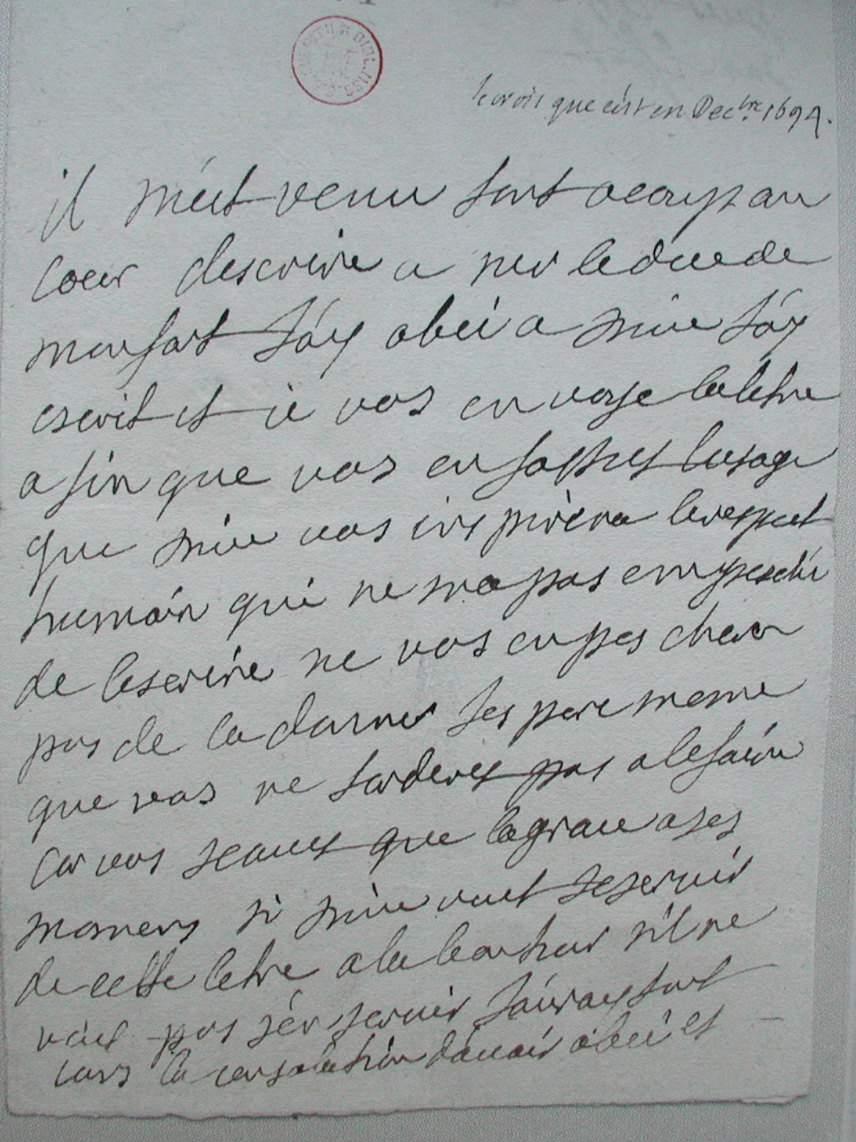 Je crois que c'est en Dec.bre 1694.
il m'est venu fort a coup au
coeur descrire a mr le duc de
monfort J'ay obei a mieu J'ay
escrit et ie vos envoye la letre
afin que vos en fassies lusage
que mieu vos inspirera le respect
humain qui ne ma pas empesché
de lescrire ne vos enpeschera
pas de la donner Jespere meme
que vos ne tarderes pas a le faire
car vos scaves que la grace a ses
momens si mieu veut se servir
de cette letre a la bonheur s'il ne
veut pas s'en servir J'auray tout
iours la consolation d'auoir obei et